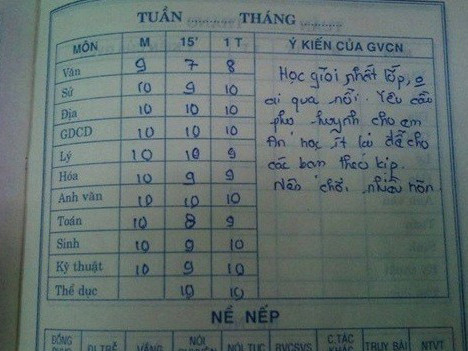 TUẦN THÁNG
MÔN M 15' 1 T Ý KIẾN CỦA GVCN
Văn 9 7 8
Sử 10 9 10
Địa 10 10 10
GDCD 10 10 10
Lý 10 10 9
Hóa 10 9 9
Anh văn 10 10 10
Toán 10 8 9
Sinh 10 9 10
Kỹ thuật 10 9 10
Thể dục 10 10
Học giỏi nhất lớp, o
ai qua nổi. Yêu cầu
phụ huynh cho em
ăn học ít lại để cho
các bạn theo kịp.
Nên chơi nhiều hơn
NỀ NẾP
ĐỒNG ĐI TRỄ VẮNG NÓI NÓI TỤC BVCSVS C.TÁC TRUY BÀI NTVT